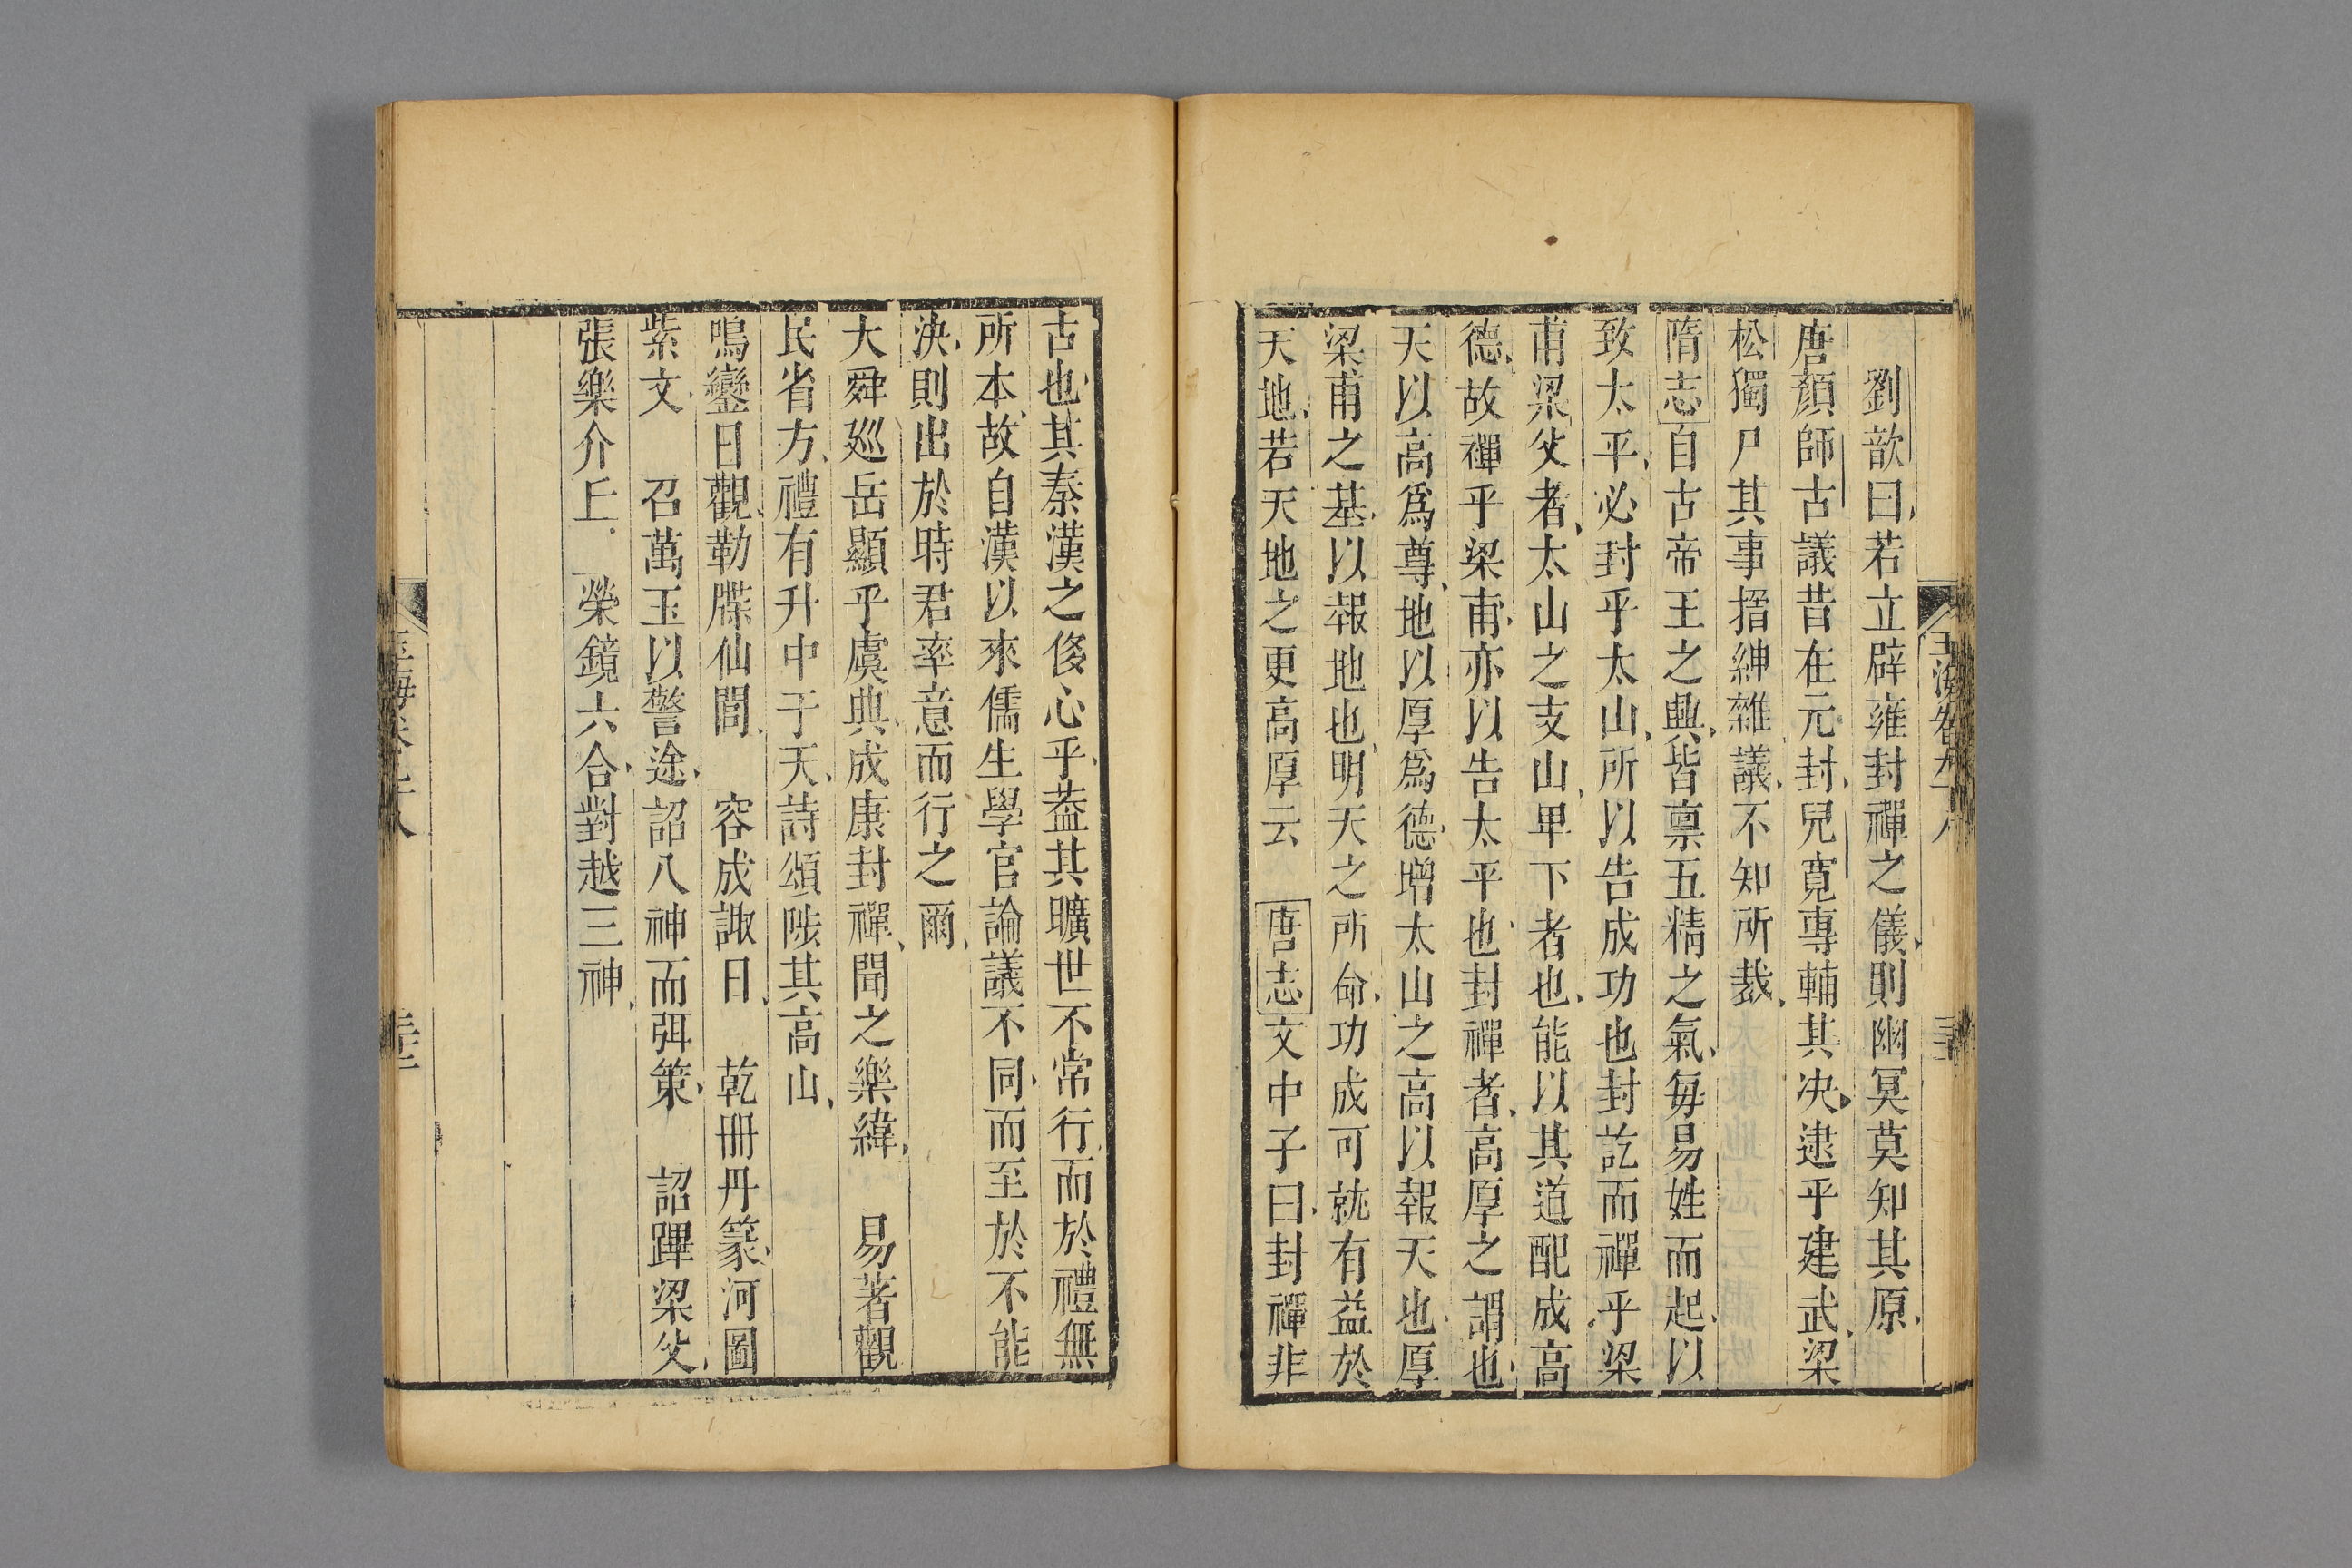 劉歆曰若立辟雍封禪之儀則幽冥莫知其原
唐顏師古議昔在元封兒寛專輔其決逮乎建武梁
松獨尸其事搢紳雜議不知所裁
隋志自古帝王之興皆禀五精之氣每易姓而起以
致太平必封乎太山所以告成功也封訖而禪乎梁
甫梁父者太山之支山卑下者也能以其道配成高
德故禪乎梁甫亦以告太平也封禪者高厚之謂也
天以高爲尊地以厚爲德增太山之高以報天也厚
梁甫之基以報地也明天之所命功成可就有益於
天地若天地之更高厚云　唐志文中子曰封禪非
古也其秦漢之侈心乎葢其曠世不常行而於禮無
所本故自漢以來儒生學官論議不同而至於不能
決則出於時君率意而行之爾
大舜廵岳顯乎虞典成康封禪聞之樂緯　易著觀
民省方禮有升中于天詩頌陟其高山
鳴鑾日觀勒牒仙閭　容成諏日　乾冊丹篆河圖
紫文　召萬玉以警途詔八神而弭策　詔蹕梁父
張樂介上　榮鏡六合對越三神